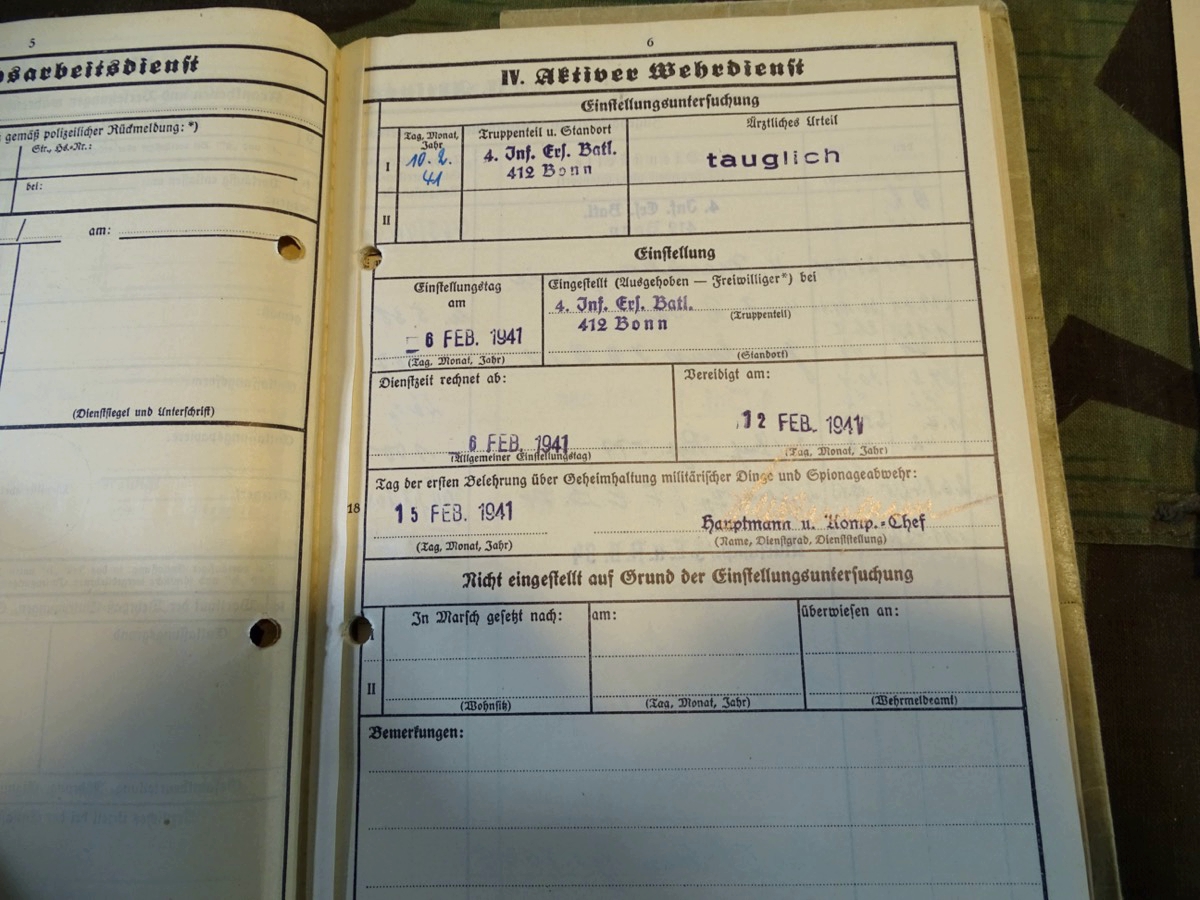 5
sarbeitsdienst
gemäß polizeilicher Rückmeldung: *)
Str., Hs.-Nr.:
bei:
/ am:
(Dienstsiegel und Unterschrift)
6
IV. Aktiver Wehrdienst
Einstellungsuntersuchung
Tag, Monat, Jahr
Truppenteil u. Standort
Ärztliches Urteil
I
10. 2.
41
4. Inf. Ers. Batl.
412 Bonn
tauglich
II
Einstellung
Einstellungstag
am
6 FEB. 1941
(Tag, Monat, Jahr)
Eingestellt (Ausgehoben — Freiwilliger*) bei
4. Inf. Ers. Batl.
(Truppenteil)
412 Bonn
(Standort)
Dienstzeit rechnet ab:
6 FEB. 1941
(Allgemeiner Einstellungstag)
Vereidigt am:
12 FEB. 1941
(Tag, Monat, Jahr)
Tag der ersten Belehrung über Geheimhaltung militärischer Dinge und Spionageabwehr:
18
15 FEB. 1941
(Tag, Monat, Jahr)
Hauptmann u. Komp.-Chef
(Name, Dienstgrad, Dienststellung)
Nicht eingestellt auf Grund der Einstellungsuntersuchung
In Marsch gesetzt nach:
am:
überwiesen an:
I
II
(Wohnsitz)
(Tag, Monat, Jahr)
(Wehrmeldeamt)
Bemerkungen: